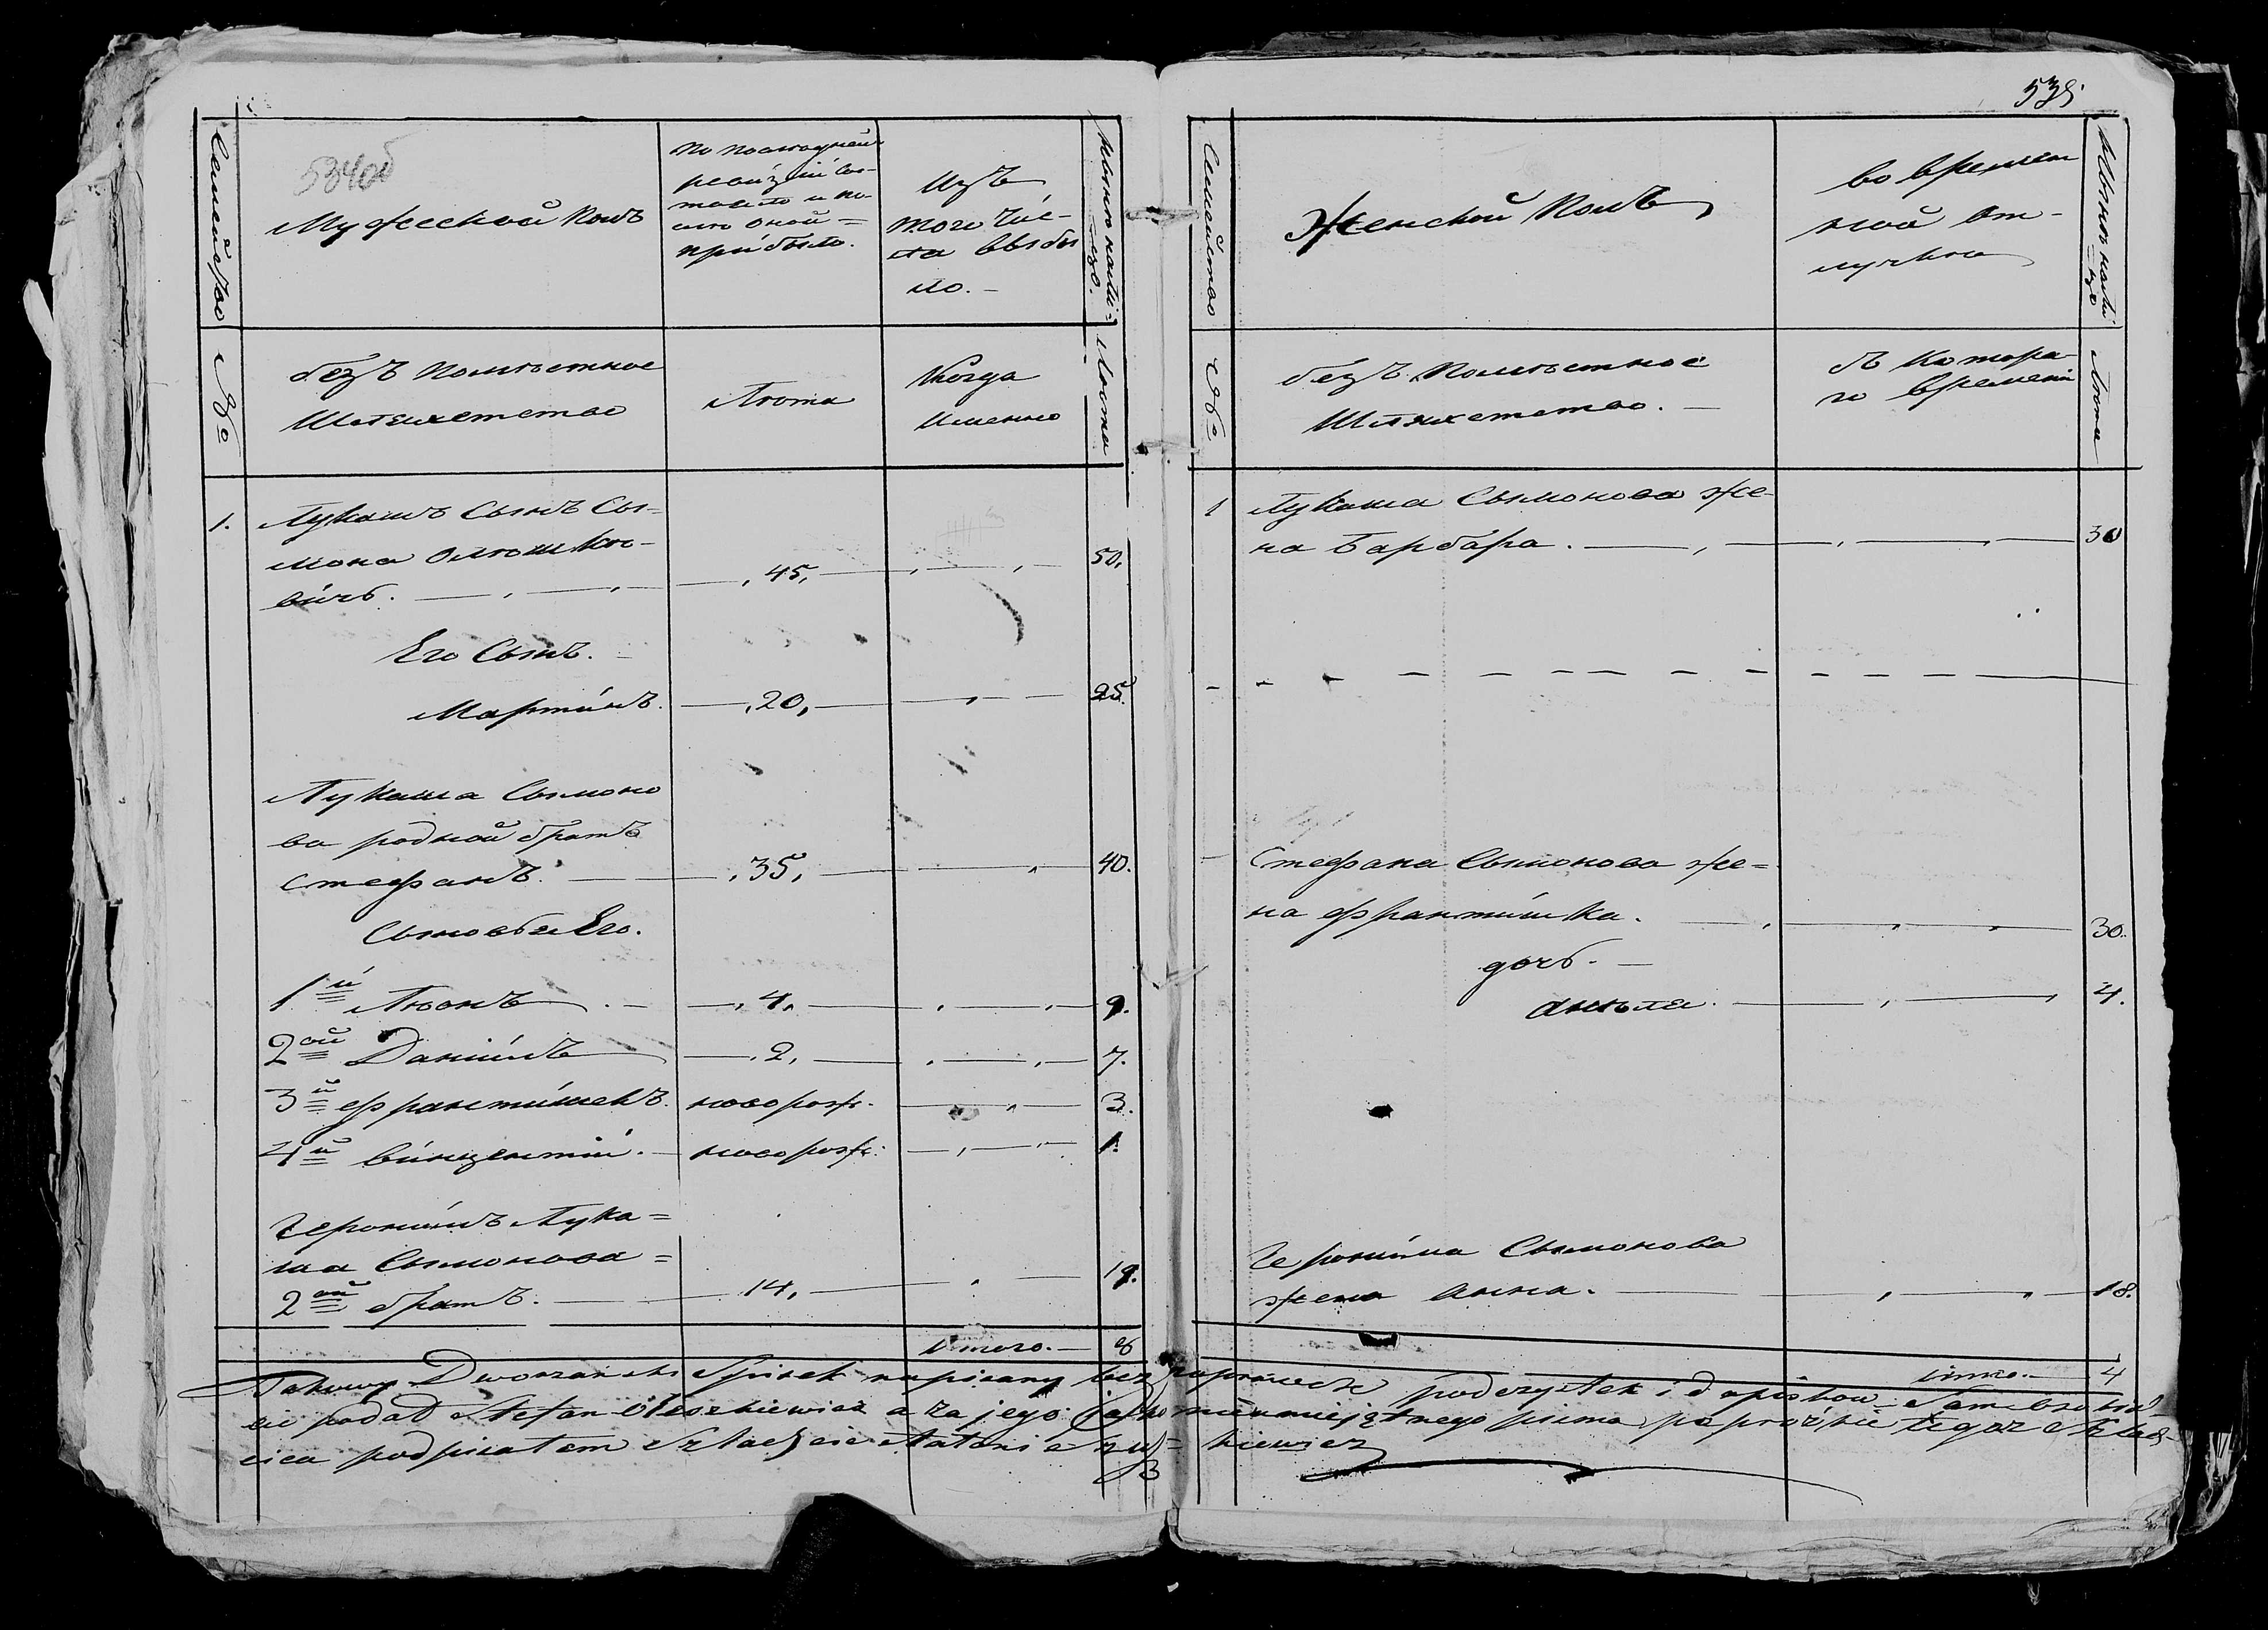 534об
Семейство
Мужеской полъ
По последней
ревизіи сос-
тояло и по-
сле оной =
прибыло.
Изъ
того чис-
ла выбы
ло. –
Ныне нали=
цо.
№о
безъ Поместное
Шляхетство
Лета
Когда
Именно
Лета
1. Лукашъ Сынъ Сы=
мона Олешке-
вичъ. 45, 50.
Его Сынъ.
Мартинъ. 20, 25.
Лукаша Сымоно
ва родной братъ
Стефанъ. 35, 40.
Сыновья Его.
1й Леонъ 4, 9.
2ой Даніилъ 2, 7.
3й Франтишекъ. новорож. 3.
4й Винцентій. новорож. 1.
Геронимъ Лука=
ша Сымонова =
2ой братъ. 14, 19.
Итого. 8
535
Семейство
Женской Полъ
во времен
ной от-
лучке
Ныне нали
цо
№о
безъ Поместное
Шляхетство. –
съ котора-
го времени
Лета
1 Лукаша Сымонова же-
на Барбара. 30
Стефана Сымонова же=
на Франтишка. 30.
дочь. –
Анеля. 4.
Геронима Сымонова
жена Анна. 18.
Итого. 4
Takowy Dworzański Spisek napisany bez poprawek podczystek i dopisków Sam
podał Stefan Oleszkiewicz a za jego jako nieumiejętnego pisma po proźbie tegoż
podpisałem Szlachcic Antoni